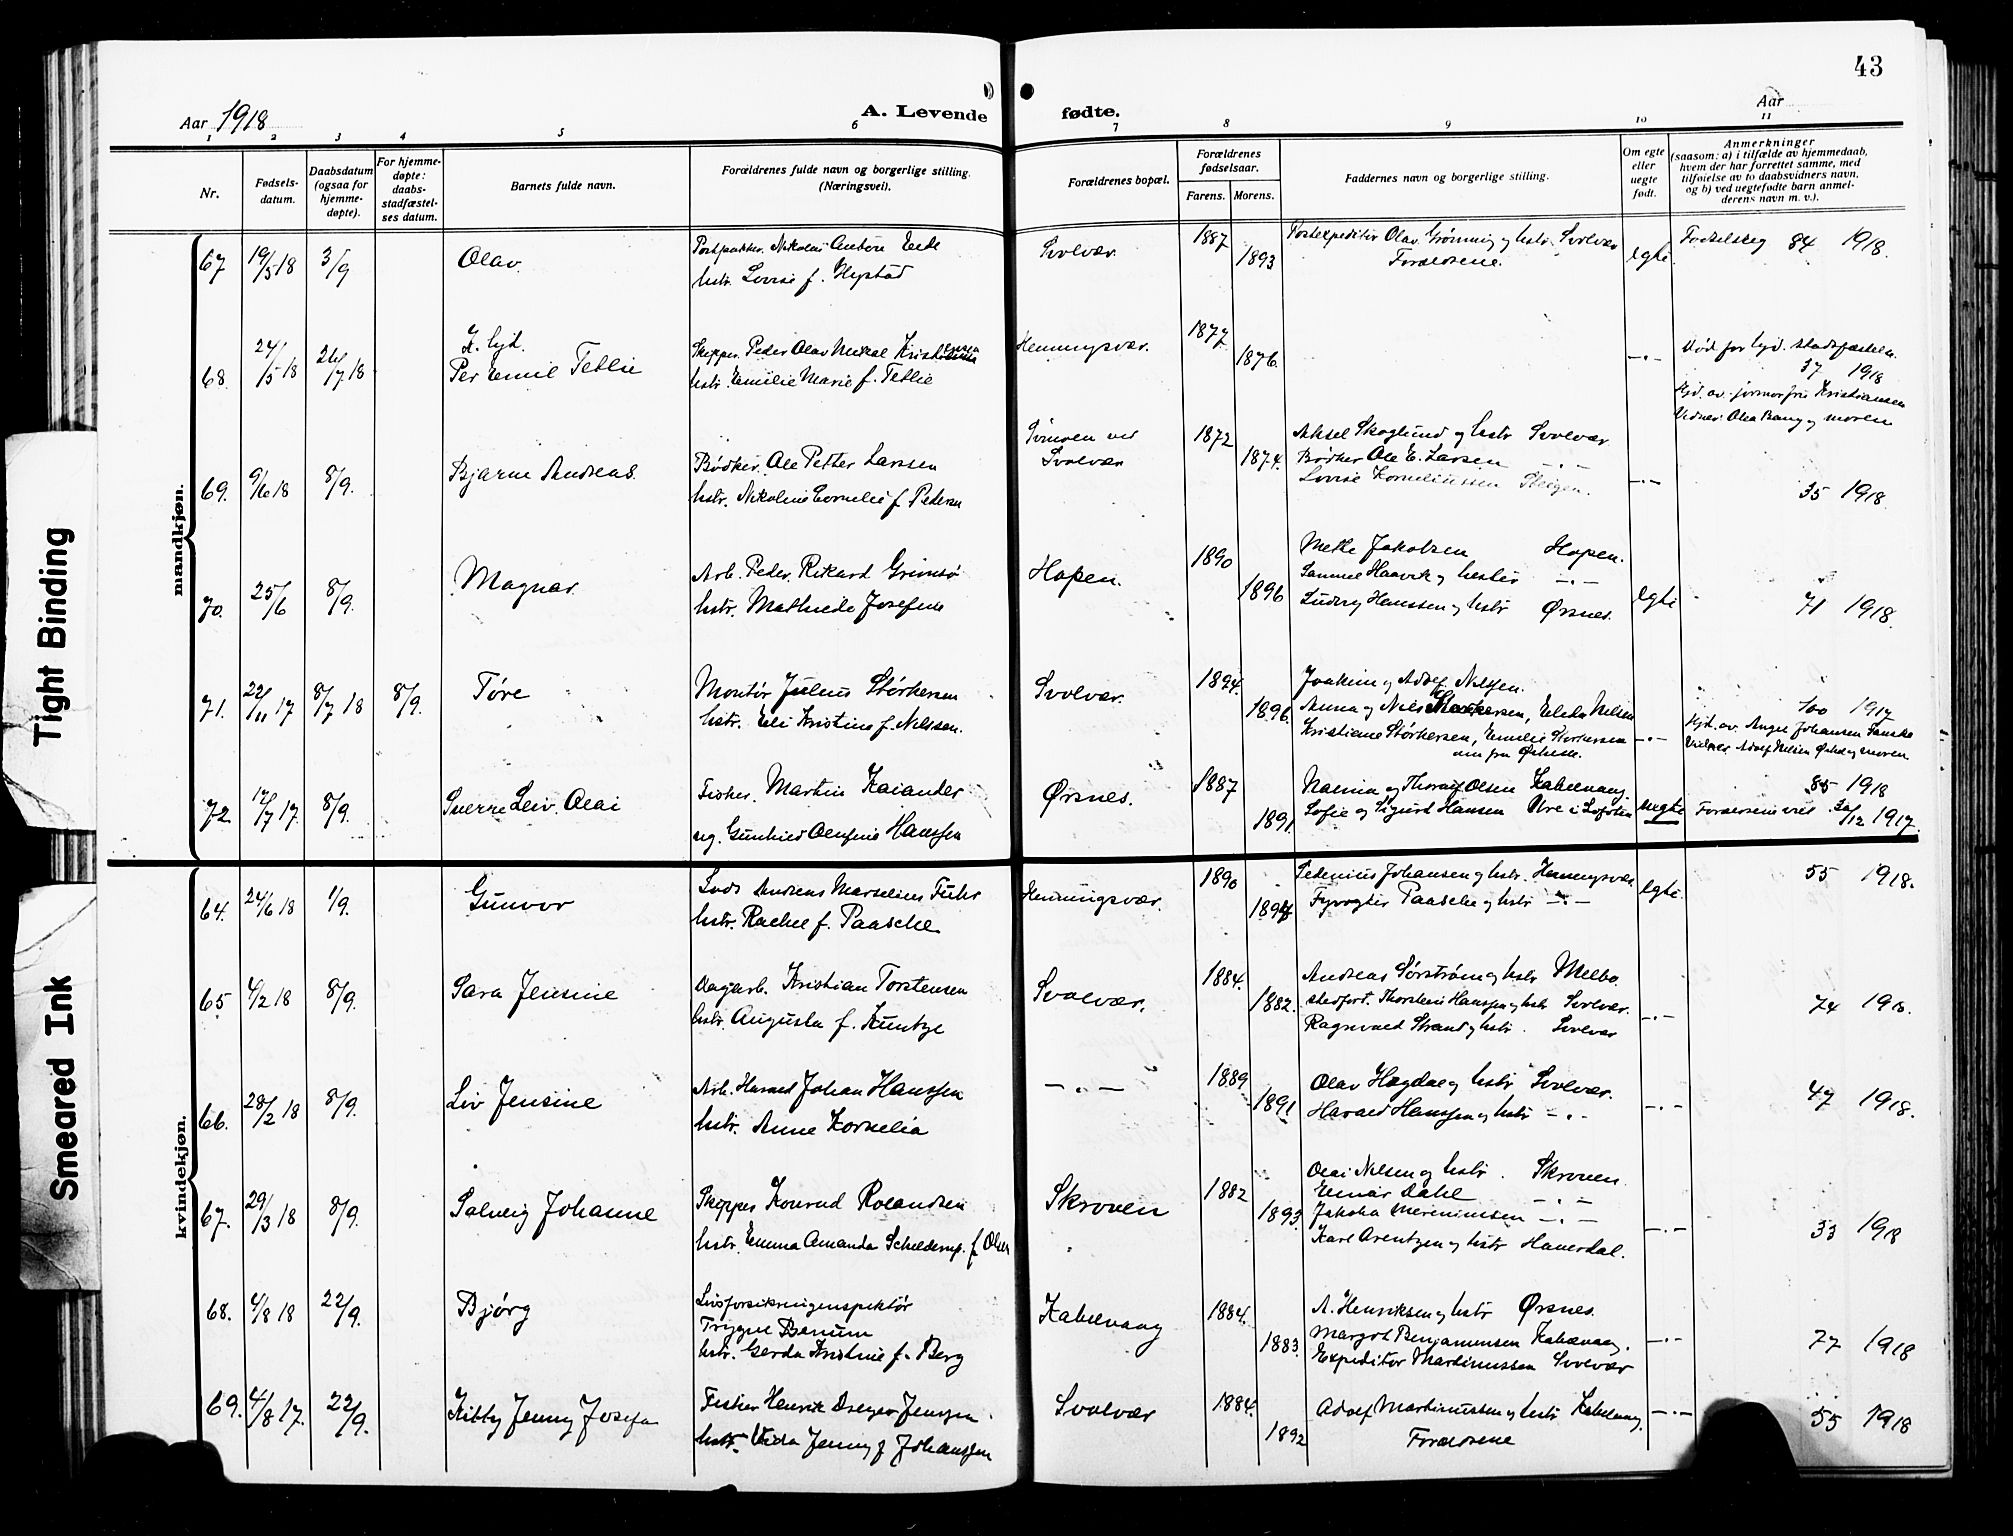 43
Aar 1918
A. Levende fødte.
Aar
1 2 3 4 5 6 7 8 9 10 11
Nr.
Fødsels-
datum.
Daabsdatum
(ogsaa for
hjemme-
døpte).
For hjemme-
døpte:
daabs-
stadfæstel-
ses datum.
Barnets fulde navn.
Forældrenes fulde navn og borgerlige stilling.
(Næringsvei).
Forældrenes bopæl.
Forældrenes
fødselsaar.
Farens. Morens.
Faddernes navn og borgerlige stilling.
Om egte
eller
uegte
født.
Anmerkninger
(saasom: a) i tilfælde av hjemmedaab,
hvem der har forrettet samme, med
tilføielse av to daabsvidners navn,
og b) ved uegtefødte barn anmel-
derens navn m. v.).
mandkjøn.
67 19/5 18 3/9 Olav.
hstr. Lovise f.
Svolvær. 1887 1893
Postexpeditør Olav Grønning og hstr. Svolvær
Forældrene.
egte
84 1918.
68. 24/5 18 26/7 18
Per Emil Teblie
Skipper. Peder Olav Mikal
hstr. Emilie Marie f. Teblie
Henningsvær. 1877 1876.
Død før hjd. stadfæstelse
37 1918
Hjd. av jormorfru Kristiansen
Vidner: Olea Bang og moren
69. 9/6 18 8/9. Bjarne Andreas.
Bødker. Ole Petter Larssen
hstr. Nikoline Cornelie f. Pedersen
Svolvær 1872 1874.
Aksel Skoglund og hstr Svolvær
Bødker Ole E. Larsen -"-
Lovise Korneliussen Steigen.
-"-
35 1918.
70. 25/6 8/9. Magnar.
Arb. Peder. Rikard Grimsø
hstr. Mathilde Josefine
Hopen. 1890 1896
Mette Jakobsen Hopen.
Samuel Haavik og hustru -"-
Ludvig Hanssen og hstr Ørsnes.
egte
71 1918.
71. 22/11 17 8/7 18 8/9. Tøre
Montør Julius Størkersen
hstr. Eli Kristine f. Nilssen.
Svolvær. 1894. 1896.
Joakim og Adolf Nilssen.
Anna og Nils Størkersen, Elida Nilsen
Kristiane Størkersen, Emilie Størkersen
-"-
100 1917
Hjd. av. Johansen
Vidner Adolf Nilsen og moren
72. 12/7 17. 8/9. Sverre Leiv. Olai
Fisker. Martin Kaiander
ug. Gunhild Olufine Hanssen
Ørsnes. 1887 1891.
Nanna og Thoralf Olsen Kabelvaag
Sofie og Sigurd Hansen Ure i Lofoten
uegte
85 1918
Forældrene viet 30/12 1917.
kvindekjøn.
64. 24/6 18 1/9. Gunvor
Lods Andreas Marselius Fuhr
hstr. Rachel f. Paasche
Henningsvær. 1890 1894
Pedenius Johansen og hstr. Henningsvær.
Fyrvogter Paasche og hstr -"-
egte.
55 1918.
65 4/2 18 8/9. Sara Jensine
Dagarb. Kristian Torstensen
hstr. Augusta f. Kuntze
Svolvær. 1884. 1882.
Andreas Sørstrøm og hstr Melbo.
Thorstein Hanssen og hstr Svolvær.
Ragnvald Strand og hstr. Svolvær
-"-
74 1918.
66. 28/2 18 8/9. Liv Jensine
Arb. Harald Johan Hanssen
hstr. Anne Kornelia
-"- 1889 1891
Olav Hagdal og hstr Svolvær.
Harald Hanssen og hstr -"-
-"-
47 1918.
67. 29/3 18 8/9. Solveig Johanne
Skipper Konrad Rolandsen
hstr. Emma Amanda Schelderup. f. Olsen
Skroven 1882 1893.
Olai Nilsen og hstr. Skroven
Einar Dahl -"-
Jakoba -"-
Karl Arentzen og hstr Haverdal.
-"-
33 1918
68. 4/8 18 22/9. Bjørg
Livsforsikringsinspektør
Trygve
hstr. Gerda Kristine f. Berg
Kabelvaag 1884. 1883.
A. Henriksen og hstr Ørsnes.
Margot Benjaminsen Kabelvaag.
Expeditør Martinussen Svolvær
-"-
77 1918
69. 4/8 17. 22/9. Kitty Jenny Josefa
Fisker Henrik Jenssen
hstr. Jenny f. Johanssen
Svolvær 1884. 1892
Adolf Martinussen og hstr Kabelvaag.
Forældrene
-"-
55 1918
Tight Binding
Smeared Ink